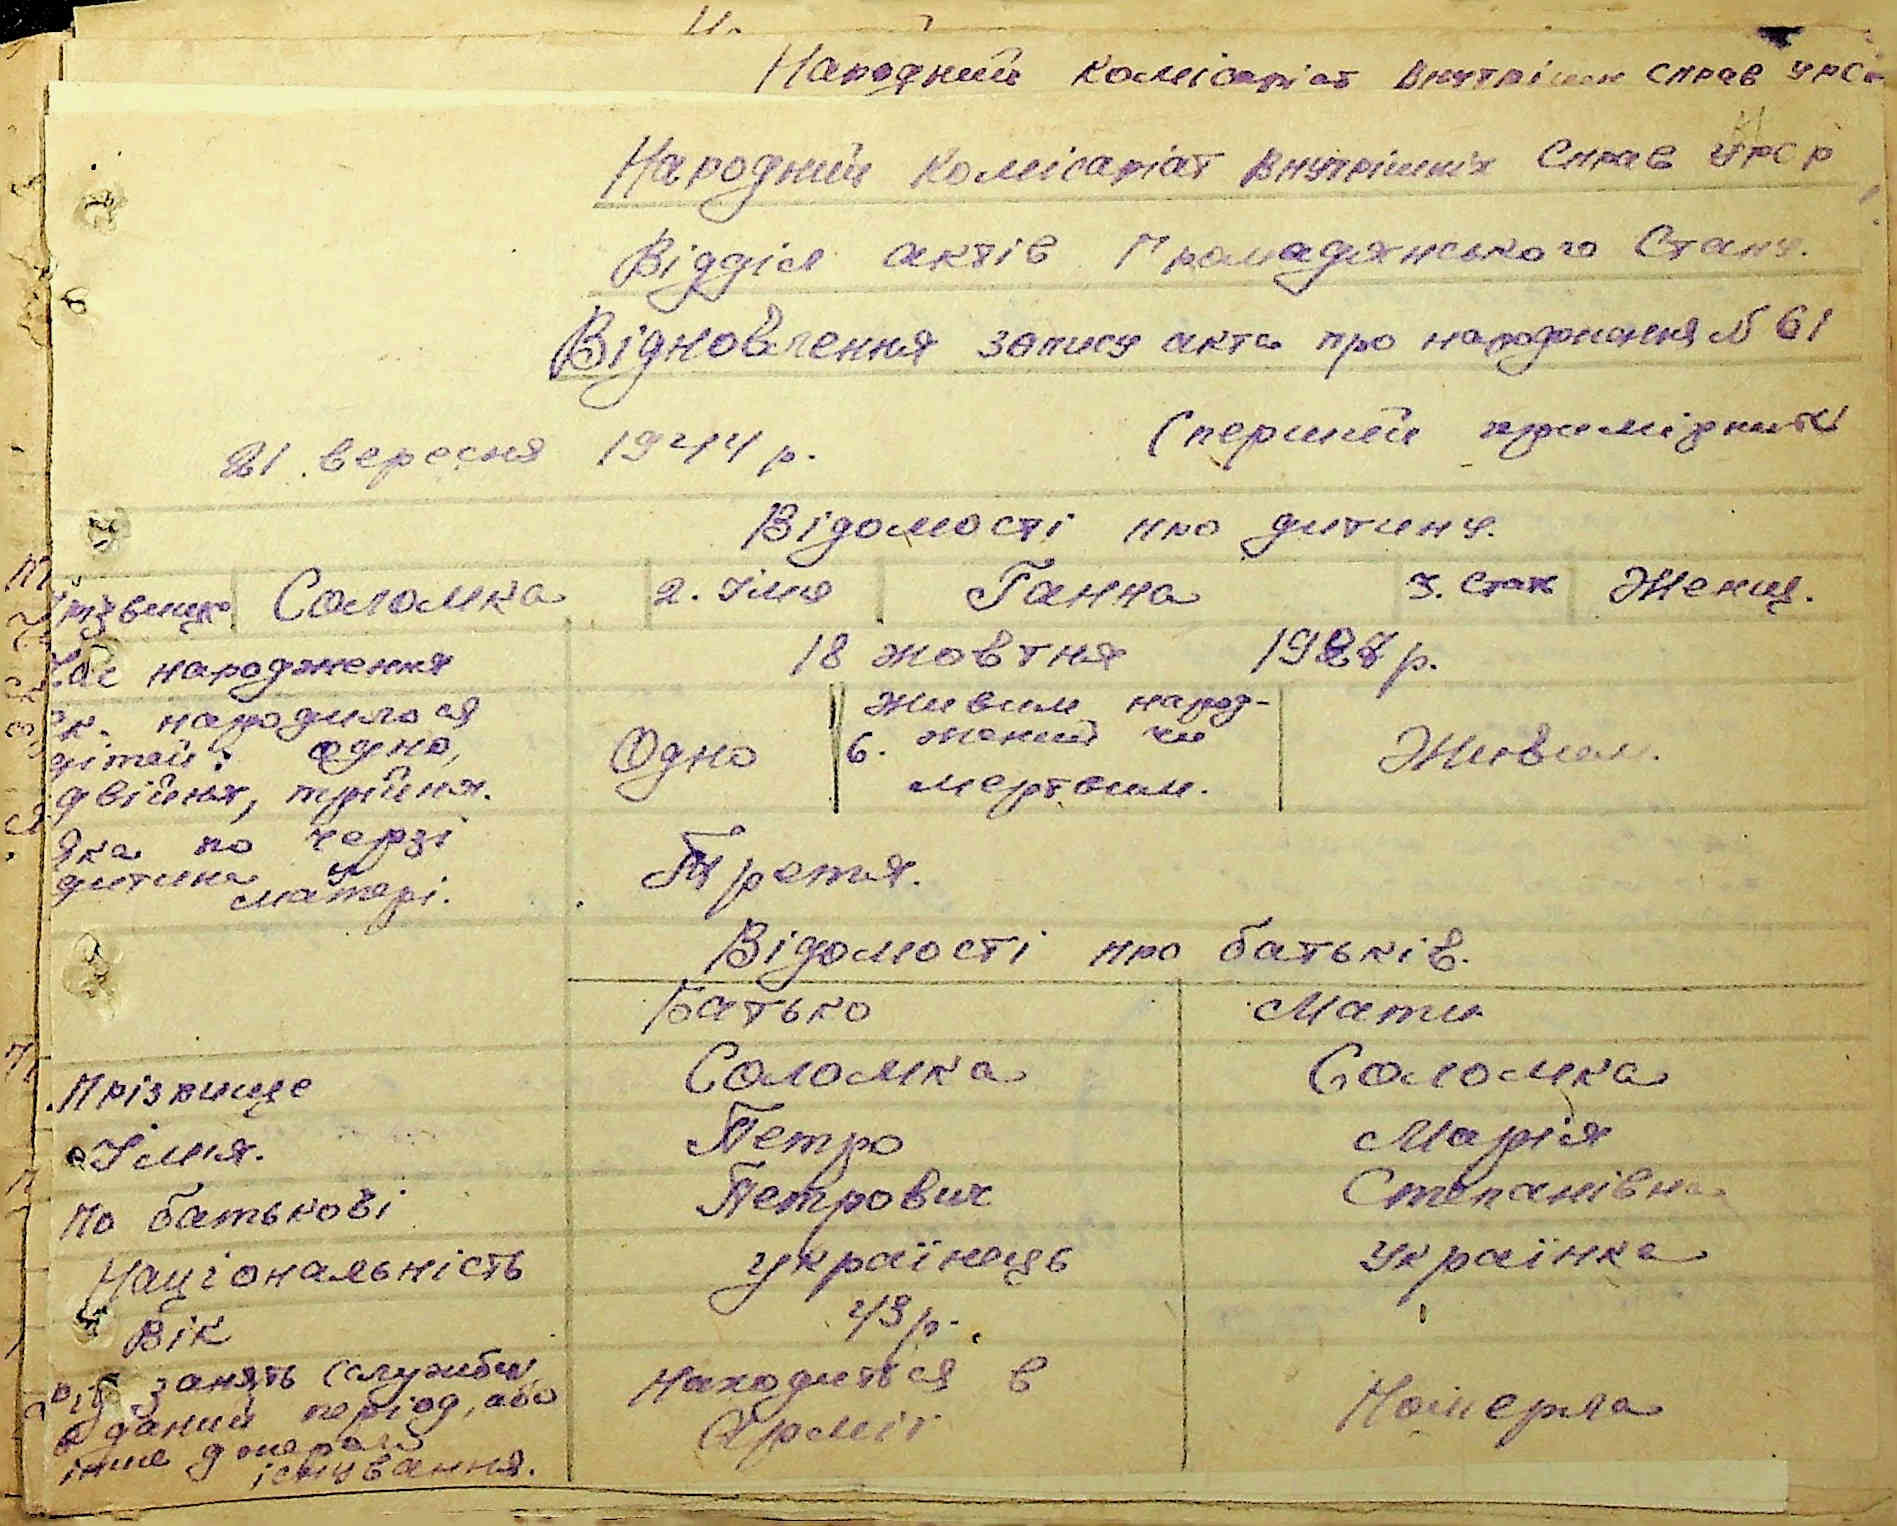 Народний Комісаріат Внутрішн Справ УРСР
Народний Комісаріат Внутрішніх Справ УРСР
Відділ актів Громадянського Стану.
Відновлення запису акта про народження N 61
21 вересня 1944 р. (перший примірник)
Відомості про дитину.
Прізвище Соломка 2. Імя Ганна 3. Стать Жеnищ.
Час народження 18 жовтня 1927 р.
Ск. народилося
дітей: одно,
двійня, трійня.
Одно
6. Живим народ-
жений чи
мертвим.
Живим.
Яка по черзі
дитина у
матері.
Третя.
Відомості про батьків.
Батько Мати
Прізвище Соломка Соломка
Імия. Петро Марія
По батькові Петрович Степанівна
Національність українець українка
Вік 43 р.
Від занять (служби)
в даний період, або
інше джерело
існування.
Находиться в
Армії
Померла